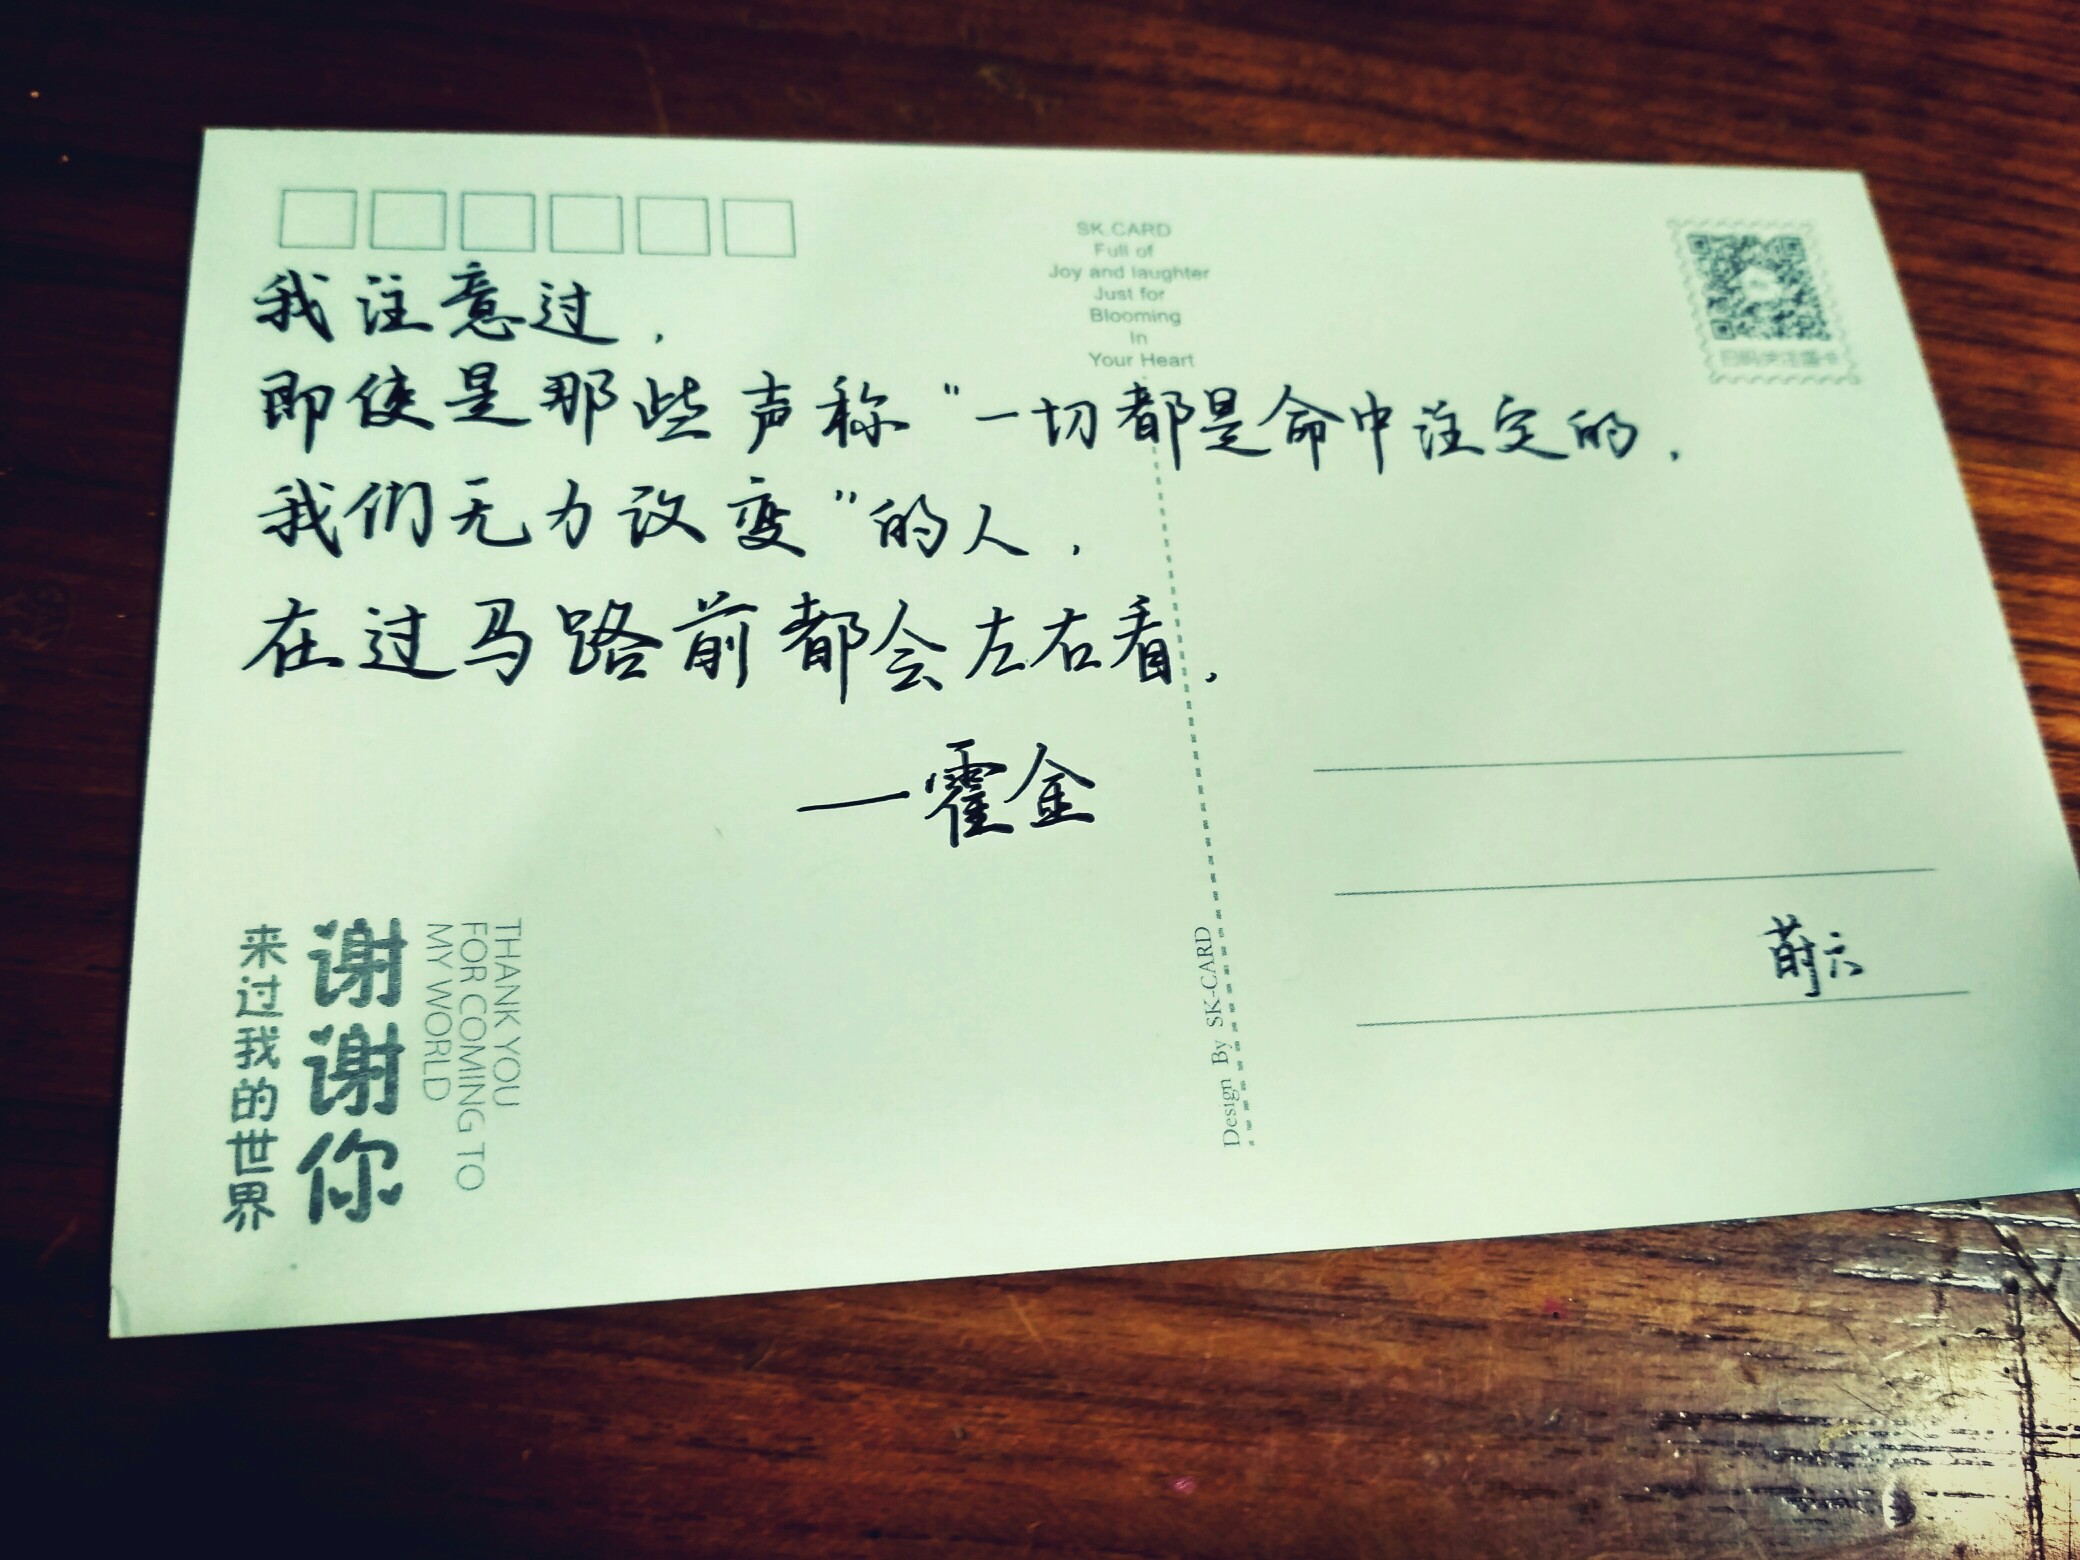 SK.CARD
Full of
Joy and laughter
Just for
Blooming
In
Your Heart
我注意过,
即使是那些声称"一切都是命中注定的,
我们无力改变"的人,
在过马路前都会左右看,
—霍金
谢谢你
来过我的世界
THANK YOU
FOR COMING TO
MY WORLD
Design By SK-CARD